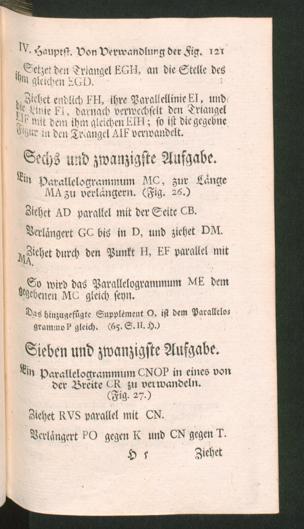 IV. Hauptst. Von Verwandlung der Fig. 121
Setzet den Triangel EGH, an die Stelle des
ihm gleichen EGD.
Ziehet endlich FH, ihre Parallellinie EI, und
die Linie FI, darnach verwechselt den Triangel
EIF mit dem ihm gleichen EIH; so ist die gegebne
Figur in den Triangel AIF verwandelt.
Sechs und zwanzigste Aufgabe.
Ein Parallelogrammum MC, zur Länge
MA zu verlängern. (Fig. 26.)
Ziehet AD parallel mit der Seite CB.
Verlängert GC bis in D, und ziehet DM.
Ziehet durch den Punkt H, EF parallel mit
MA.
So wird das Parallelogrammum ME dem
gegebenen MC gleich seyn.
Das hinzugefügte Supplement O, ist dem Parallelo-
grammo P gleich. (65. S. II. H.)
Sieben und zwanzigste Aufgabe.
Ein Parallelogrammum CNOP in eines von
der Breite CR zu verwandeln.
(Fig. 27.)
Ziehet RVS parallel mit CN.
Verlängert PO gegen K und CN gegen T.
H 5 Ziehet